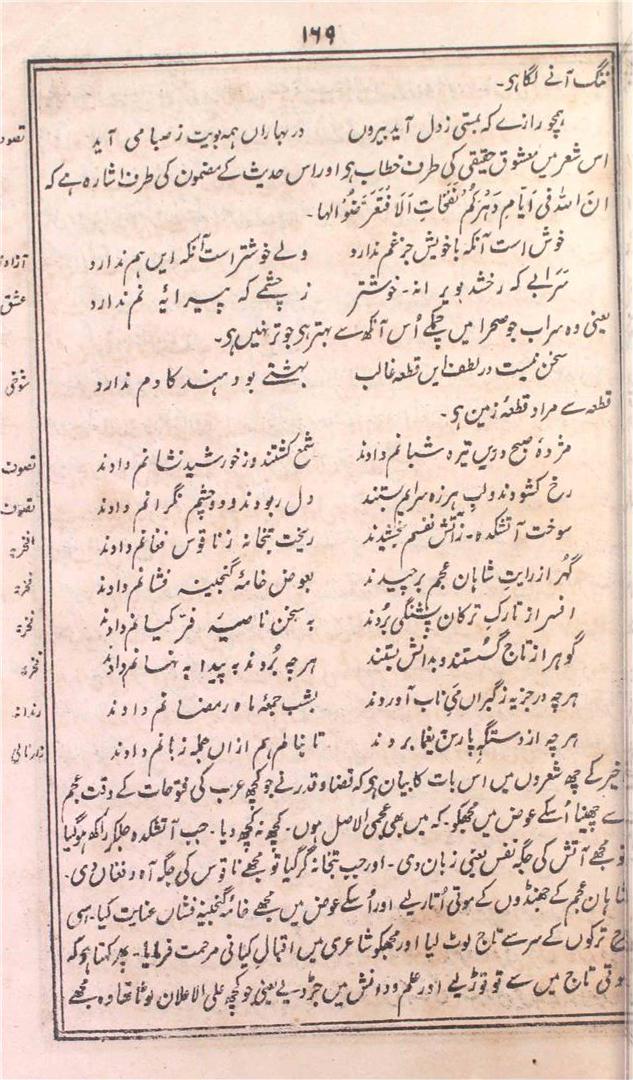 ۱۶۹
تنگ آنے لگا ہی۔
ہمچو رازے کہ بمستی ز دل آید بیروں در بہاراں ہمہ بویت ز صبا می آید
اس شعر میں معشوق حقیقی کی طرف خطاب ہی اور اس حدیث کے مضمون کی طرف اشارہ ہے کہ
انّ اللہ فی ایام دہرکم نفحات الا فتعرضوا لہا۔
خوش است آنکہ با خویش جز غم ندارد ولے خوشتر است آنکہ ایں ہم ندارد
سرابے کہ رخشد بویرانہ۔ خوشتر ز چشمے کہ پیرایۂ نم ندارد
یعنی وہ سراب جو صحرا میں چمکے اُس آنکھ سے بہتر ہی جو تر نہیں ہی۔
سخن نیست در لطف ایں قطعہ غالب بہشتے بود ہند کادم ندارد
قطعہ سے مراد قطعۂ زمین ہی۔
مژدۂ صبح دریں تیرہ شبانم دادند شمع کشتند و ز خورشید نشانم دادند
رخ کشودند و لب ہرزہ سرایم بستند دل ربودند و دو چشم نگرانم دادند
سوخت آتشکدہ۔ ز آتش نفسم بخشیدند ریخت بتخانہ ز ناقوس فغانم دادند
گہر از رایت شاہان عجم برچیدند بعوض خامۂ گنجینہ فشانم دادند
افسر از تارک ترکان پشنگی بردند بہ سخن ناصیۂ فرّ کیانم دادند
گوہر از تاج گسستند و بدانش بستند ہر چہ بردند بہ پیدا بہ نہانم دادند
ہر چہ در جزیہ ز گبراں می ناب آوردند بشب جمعۂ ماہ رمضانم دادند
ہر چہ از دستگہ پارس یغما بردند تا بنالم ہم ازاں جملہ زبانم دادند
خیر کے چھ شعروں میں اس بات کا بیان ہی کہ قضا و قدر نے جو کچھ عرب کی فتوحات کے وقت عجم
سے چھینا اُسکے عوض میں مجھکو۔ کہ میں بھی عجمی الاصل ہوں۔ کچھ نہ کچھ دیا۔ جب آتشکدہ جلکر راکھ ہو گیا
تو مجھے آتش کی جگہ نفس یعنی زبان دی۔ اور جب بتخانہ گر گیا تو مجھے ناقوس کی جگہ آہ و فغاں دی۔
شاہان عجم کے جھنڈوں کے موتی اُتار لیے اور اُسکے عوض میں مجھے خامۂ گنجینہ فشاں عنایت کیا۔ اسی
طرح ترکوں کے سر سے تاج لوٹ لیا اور مجھکو شاعری میں اقبال کیانی مرحمت فرمایا۔ پھر کہتا ہو کہ
موتی تاج میں سے تو توڑ لیے اور علم و دانش میں جڑ دیے یعنی جو کچھ علی الاعلان لوٹا تھا وہ مجھے
تصوف
آزادی
عشق
شوخی
تصوف
تصوف
فخریہ
فخریہ
فخریہ
فخریہ
رندانہ
زار نالی